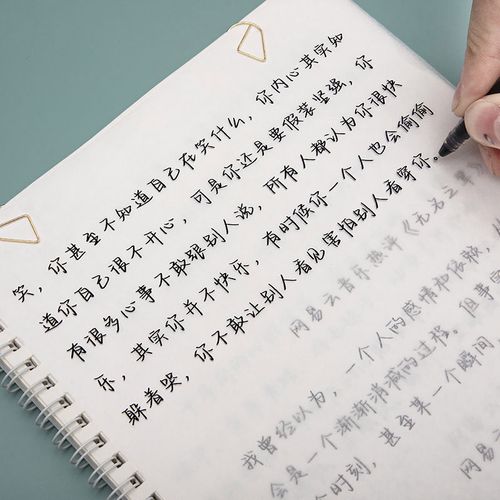 笑，你甚至不知道自己在笑什么，你内心其实知
道你自己很不开心，可是你还是要假装坚强，你
有很多心事不敢跟别人说，所有人都认为你很快
乐，其实你并不快乐，有时候你一个人也会偷偷
躲着哭，你不敢让别人看见害怕别人看穿你。
网易云音乐热评《无名之辈
我曾经以为，一个人的感情和依
会是一个渐渐消减的过程。但事
一时刻，甚至某一个瞬间，
网易云